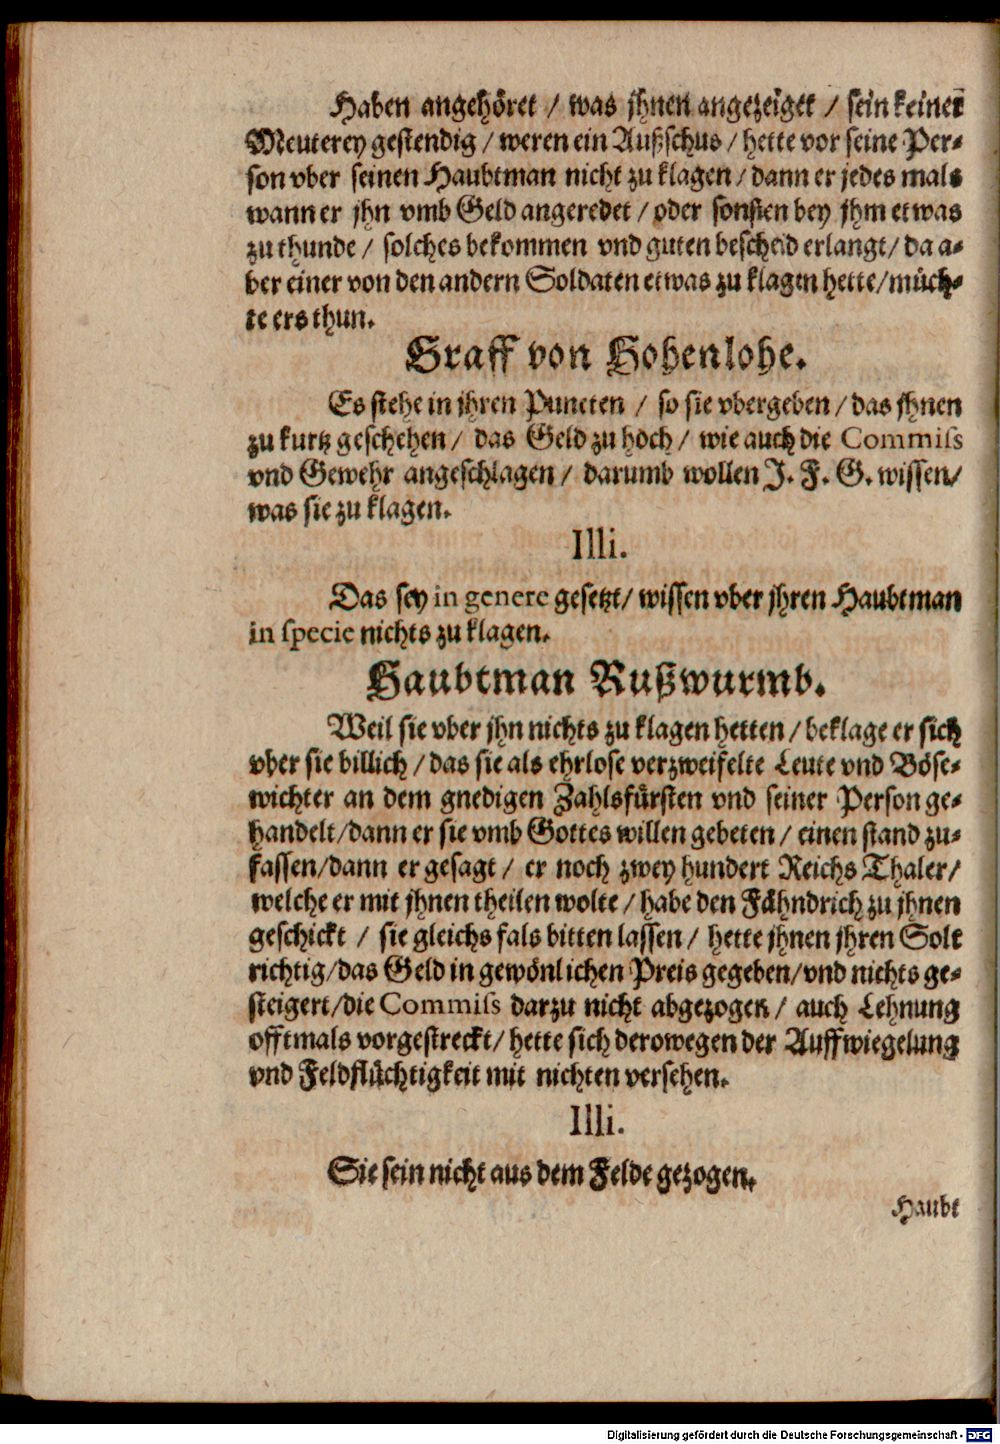 Haben angehöret / was jhnen angezeiget / sein keiner
Meuterey gestendig / weren ein Außschus / hette vor seine Per-
son vber seinen Haubtman nicht zu klagen / dann er jedes mals
wann er jhn vmb Geld angeredet / oder sonsten bey jhm etwas
zu thunde / solches bekommen vnd guten bescheid erlangt / da a-
ber einer von den andern Soldaten etwas zu klagen hette / müch-
te ers thun.
Graff von Hohenlohe.
Es stehe in jhren Puncten / so sie vbergeben / das jhnen
zu kurtz geschehen / das Geld zu hoch / wie auch die Commiſs
vnd Gewehr angeschlagen / darumb wollen J. F. G. wissen /
was sie zu klagen.
Illi.
Das sey in genere gesetzt / wissen vber jhren Haubtman
in specie nichts zu klagen.
Haubtman Rußwurmb.
Weil sie vber jhn nichts zu klagen hetten / beklage er sich
vber sie billich / das sie als ehrlose verzweifelte Leute vnd Böse-
wichter an dem gnedigen Zahlsfürsten vnd seiner Person ge-
handelt / dann er sie vmb Gottes willen gebeten / einen stand zu-
fassen / dann er gesagt / er noch zwey hundert Reichs Thaler /
welche er mit jhnen theilen wolte / habe den Fähndrich zu jhnen
geschickt / sie gleichs fals bitten lassen / hette jhnen jhren Solt
richtig / das Geld in gewönlichen Preis gegeben / vnd nichts ge-
steigert / die Commiſs darzu nicht abgezogen / auch Lehnung
offtmals vorgestreckt / hette sich derowegen der Auffwiegelung
vnd Feldflüchtigkeit mit nichten versehen.
Illi.
Sie sein nicht aus dem Felde gezogen.
Haubt
Digitalisierung gefördert durch die Deutsche Forschungsgemeinschaft - DFG